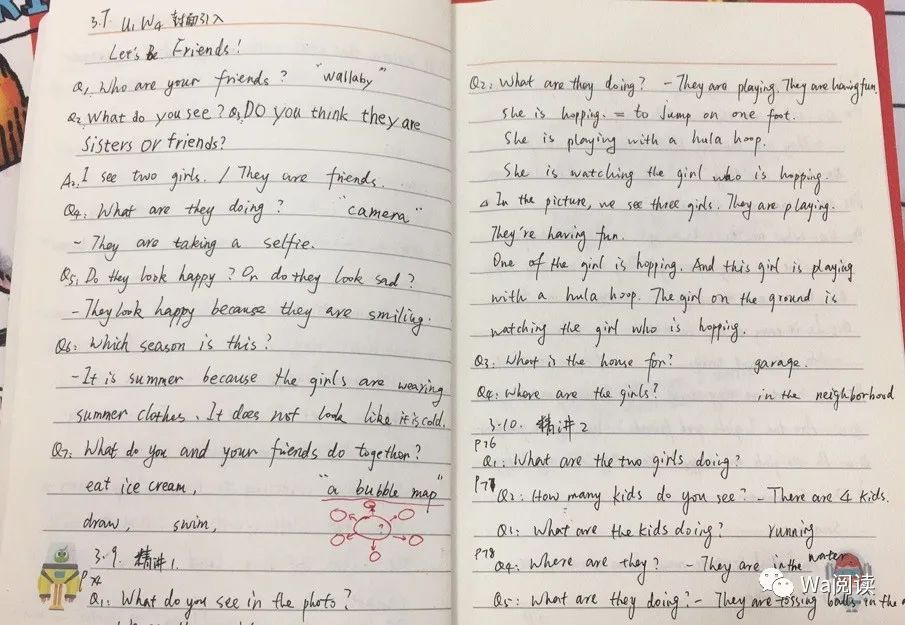 3.7 U1 W4 封面引入
Let's Be Friends!
Q1. Who are your friends? "wallaby"
Q2. What do you see? Q3. DO you think they are
sisters or friends?
A2. I see two girls. / They are friends.
Q4: What are they doing? "camera"
- They are taking a selfie.
Q5: Do they look happy? Or do they look sad?
- They look happy because they are smiling.
Q6: Which season is this?
- It is summer because the girls are wearing
summer clothes. It does not look like it is cold.
Q7: What do you and your friends do together?
eat ice cream, "a bubble map"
draw, swim,
?
3.9. 精讲1.
P74
Q1: What do you see in the photo?
Q2: What are they doing? - They are playing. They are having fun.
She is hopping. = to jump on one foot.
She is playing with a hula hoop.
She is watching the girl who is hopping.
△ In the picture, we see three girls. They are playing.
They're having fun.
One of the girl is hopping. And this girl is playing
with a hula hoop. The girl on the ground is
watching the girl who is hopping.
Q3: What is the house for? garage.
Q4: Where are the girls? in the neighborhood
3.10. 精讲2
P76
Q1: What are the two girls doing?
P77
Q2: How many kids do you see? - There are 4 kids.
Q1: What are the kids doing? running
P78
Q4: Where are they? - They are in the water
Q5: What are they doing? - They are tossing balls in the
Wa阅读